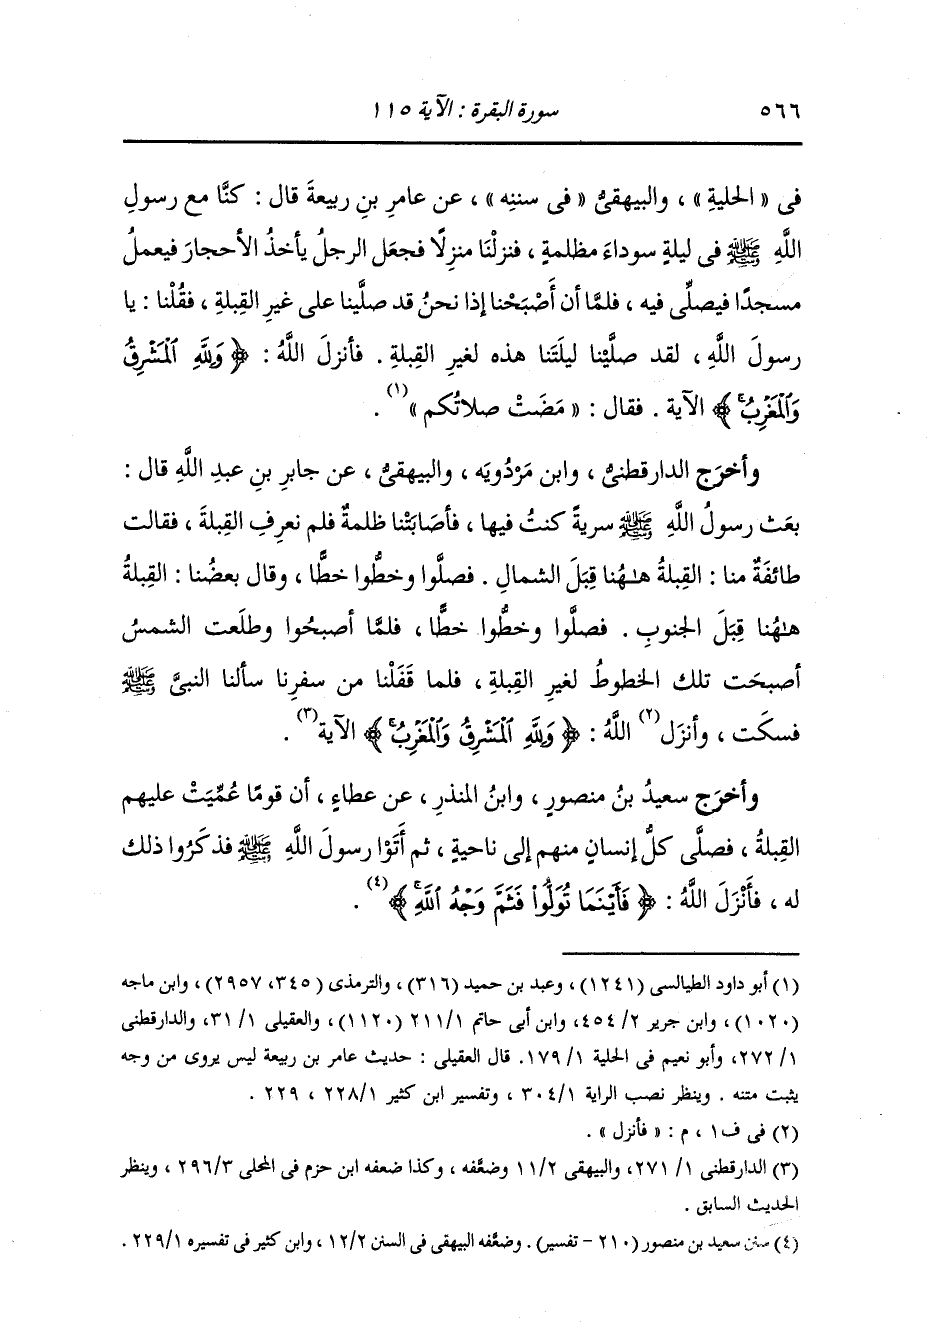 ٥٦٦
سورة البقرة : الآية ١١٥
فى « الحليةِ » ، والبيهقىُّ « فى سننِه » ، عن عامرِ بنِ ربيعةَ قال : كنَّا مع رسولِ
اللَّهِ ﷺ فى ليلةٍ سوداءَ مظلمةٍ ، فنزلْنَا منزِلًا فجعَل الرجلُ يأخذُ الأحجارَ فيعملُ
مسجدًا فيصلِّى فيه ، فلمَّا أن أَصْبَحْنا إذا نحنُ قد صلَّينا على غيرِ القِبلةِ ، فقُلْنا : يا
رسولَ اللَّهِ ، لقد صلَّيْنا ليلَتَنا هذه لغيرِ القِبلةِ . فأنزلَ اللَّهُ : ﴿ وَلِلَّهِ ٱلْمَشْرِقُ
وَٱلْمَغْرِبُۚ ﴾ الآية . فقال : « مَضَتْ صلاتُكم »(١) .
وأخرَج الدارقطنىُّ ، وابن مَرْدُويَه ، والبيهقىُّ ، عن جابرِ بنِ عبدِ اللَّهِ قال :
بعَث رسولُ اللَّهِ ﷺ سريةً كنتُ فيها ، فأصَابَتْنا ظلمةٌ فلم نعرِفِ القِبلةَ ، فقالت
طائفَةٌ منا : القِبلةُ هـٰهُنا قِبَلَ الشمالِ . فصلَّوا وخطُّوا خطًّا ، وقال بعضُنا : القِبلةُ
هـٰهُنا قِبَلَ الجنوبِ . فصلَّوا وخطُّوا خطًّا ، فلمَّا أصبحُوا وطلَعت الشمسُ
أصبحَت تلك الخطوطُ لغيرِ القِبلةِ ، فلما قَفَلْنا من سفرِنا سألنا النبىَّ ﷺ
فسكَت ، وأنزَل(٢) اللَّهُ : ﴿ وَلِلَّهِ ٱلْمَشْرِقُ وَٱلْمَغْرِبُۚ ﴾ الآية(٣) .
وأخرَج سعيدُ بنُ منصورٍ ، وابنُ المنذرِ ، عن عطاءٍ ، أن قومًا عُمِّيَتْ عليهم
القِبلةُ ، فصلَّى كلُّ إنسانٍ منهم إلى ناحيةٍ ، ثم أَتَوْا رسولَ اللَّهِ ﷺ فذكَرُوا ذلك
له ، فأَنْزَلَ اللَّهُ : ﴿ فَأَيْنَمَا تُوَلُّوا۟ فَثَمَّ وَجْهُ ٱللَّهِۚ ﴾(٤) .
(١) أبو داود الطيالسى (١٢٤١) ، وعبد بن حميد (٣١٦) ، والترمذى (٣٤٥، ٢٩٥٧) ، وابن ماجه
(١٠٢٠) ، وابن جرير ٢/ ٤٥٤، وابن أبى حاتم ٢١١/١ (١١٢٠) ، والعقيلى ١/ ٣١، والدارقطنى
١/ ٢٧٢، وأبو نعيم فى الحلية ١/ ١٧٩. قال العقيلى : حديث عامر بن ربيعة ليس يروى من وجه
يثبت متنه . وينظر نصب الراية ٣٠٤/١ ، وتفسير ابن كثير ٢٢٨/١ ، ٢٢٩ .
(٢) فى ف١ ، م : « فأنزل » .
(٣) الدارقطنى ١/ ٢٧١، والبيهقى ١١/٢ وضعَّفه ، وكذا ضعفه ابن حزم فى المحلى ٢٩٦/٣ ، وينظر
الحديث السابق .
(٤) سنن سعيد بن منصور (٢١٠ - تفسير) . وضعَّفه البيهقى فى السنن ١٢/٢ ، وابن كثير فى تفسيره ٢٢٩/١ .